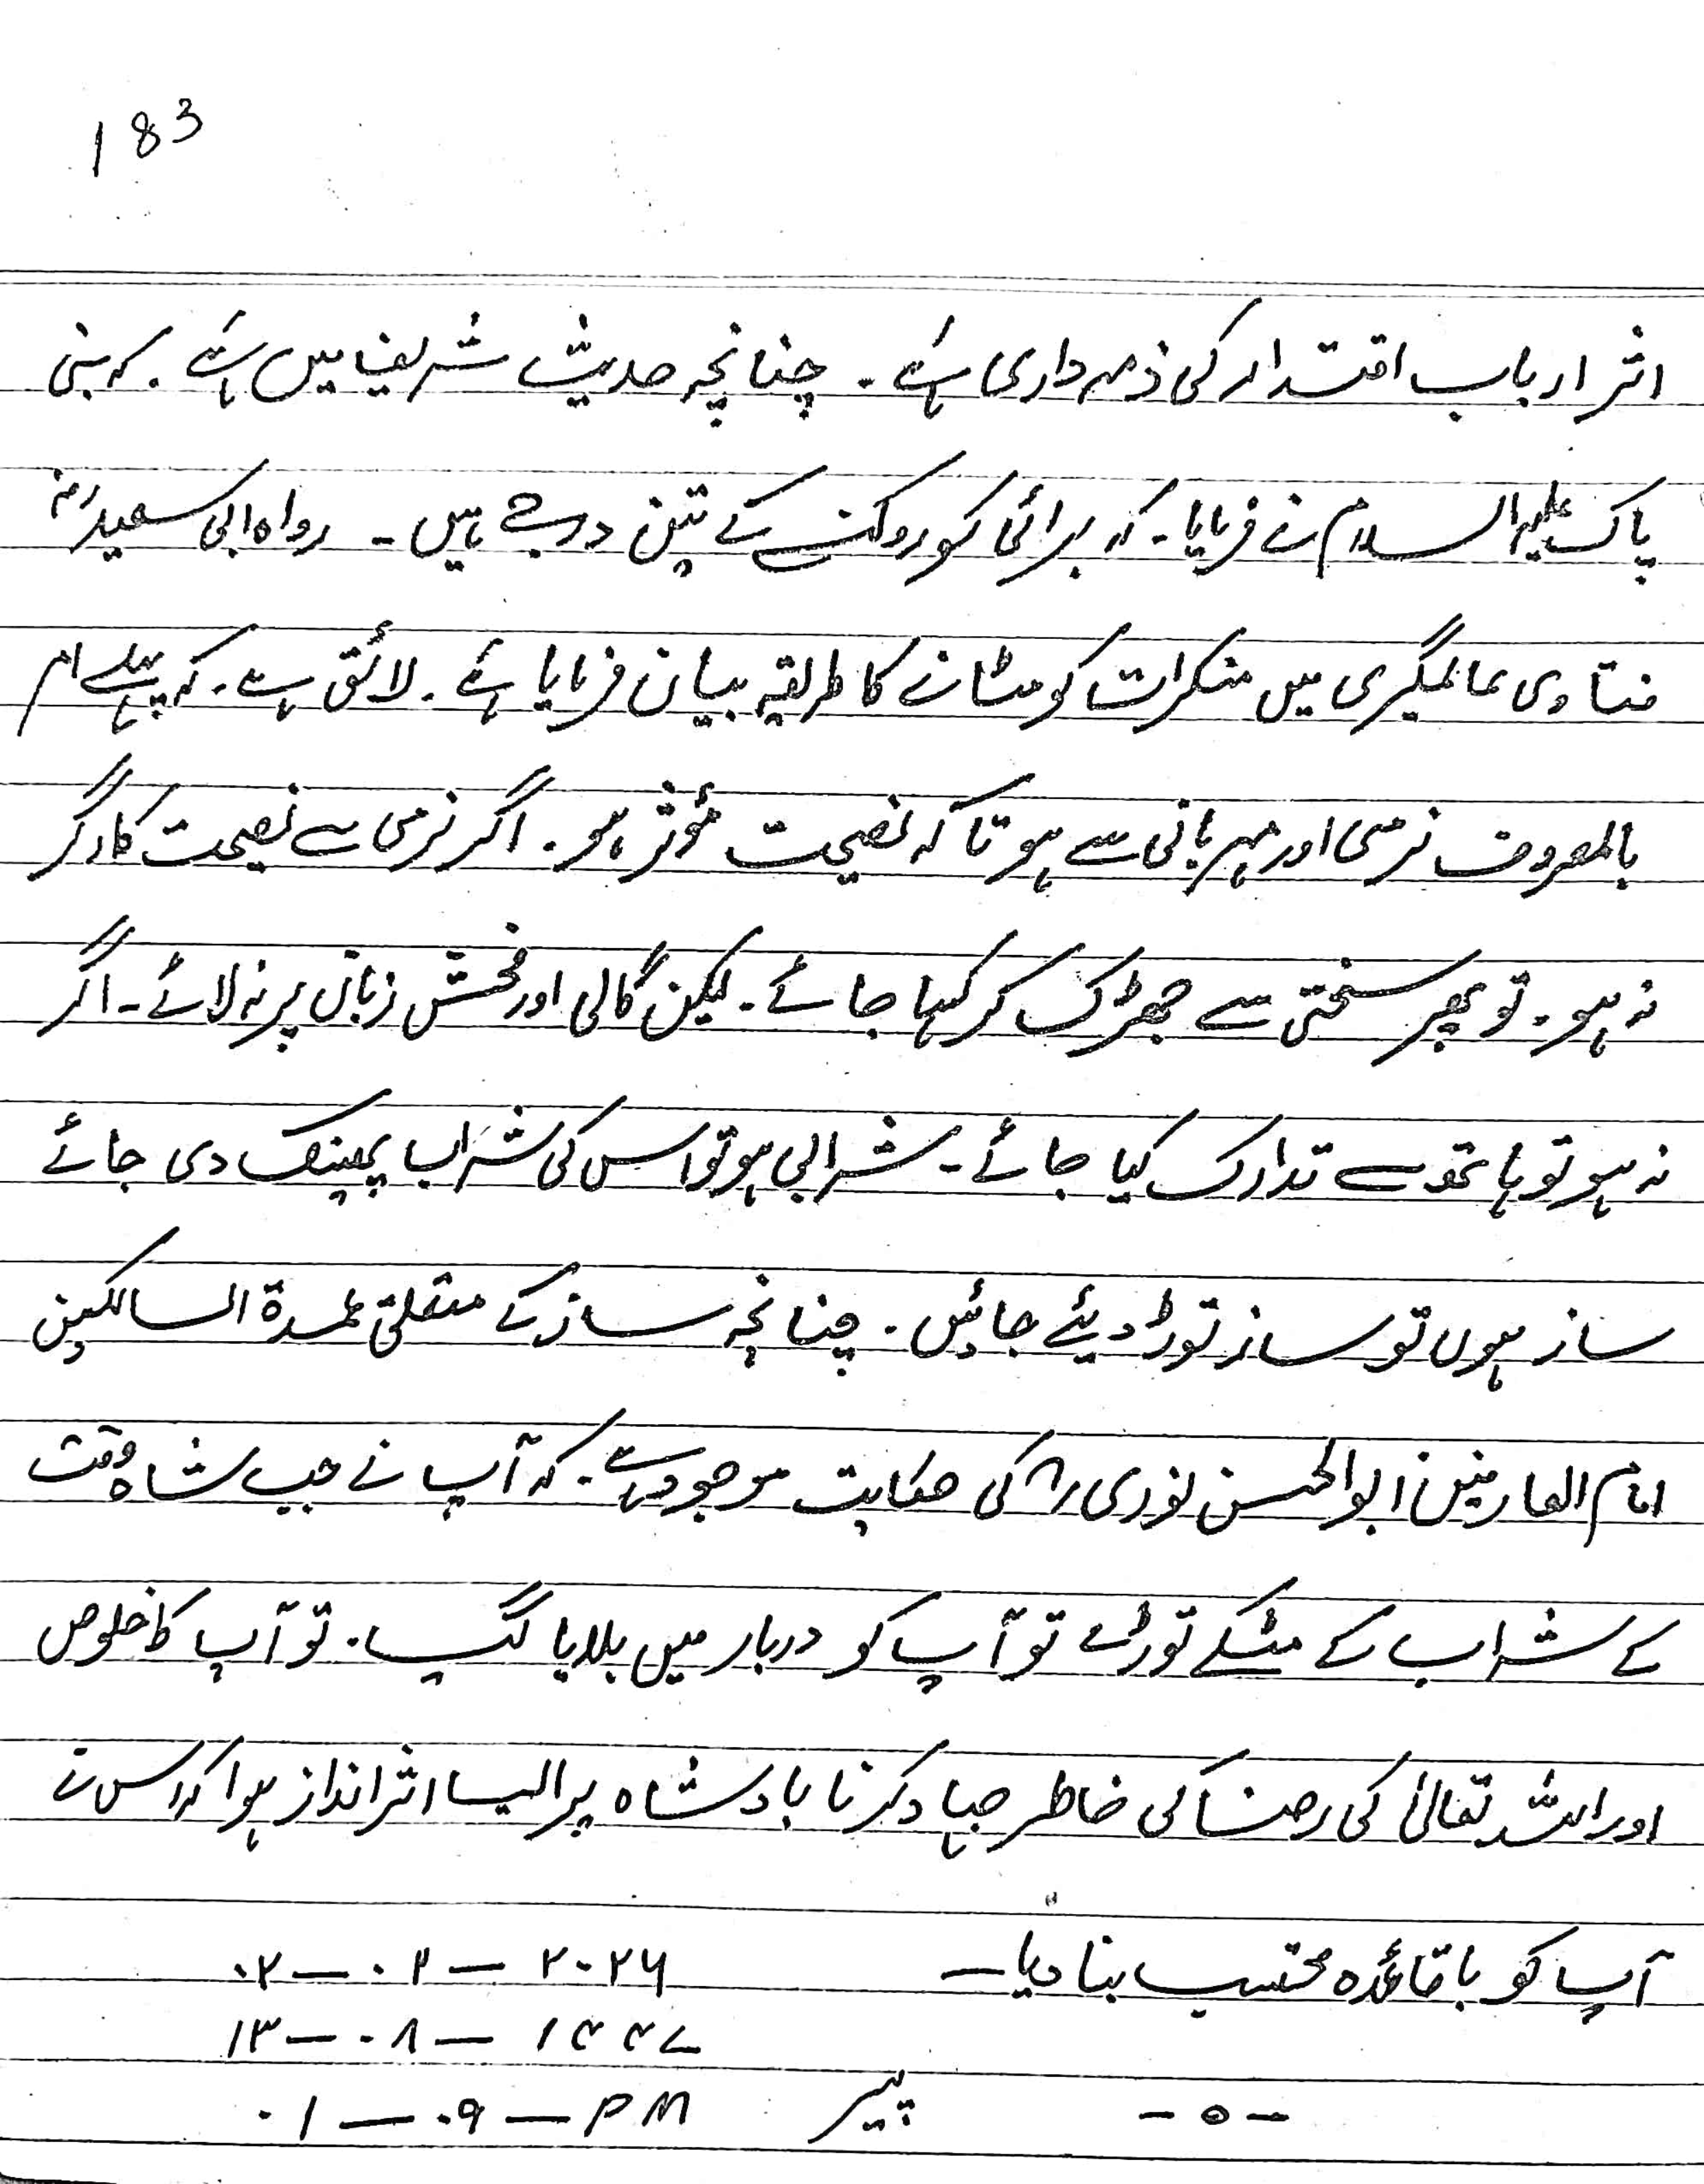 183
اثر ارباب اقتدار کی ذمہ داری ہے۔ چنانچہ حدیث شریف میں ہے۔ کہ نبی
پاک علیہ السلام نے فرمایا۔ کہ برائی کو روکنے کے تین درجے ہیں۔ رواہ ابی سعیدرض
فتاوی عالمگیری میں منکرات کو مٹانے کا طریقہ بیان فرمایا ہے۔ لائق ہے۔ کہ پہلے امر
بالمعروف نرمی اور مہربانی سے ہو تاکہ نصیحت مؤثر ہو۔ اگر نرمی سے نصیحت کارگر
نہ ہو۔ تو پھر سختی سے جھڑک کر کہا جائے۔ لیکن گالی اور فحش زبان پر نہ لائے۔ اگر
نہ ہو تو ہاتھ سے تدارک کیا جائے۔ شرابی ہو تو اس کی شراب پھینک دی جائے
ساز ہوں تو ساز توڑ دیئے جائیں۔ چنانچہ ساز کے متعلق عمدۃ السالکین
امام العارفین ابوالحسن نوریؒ کی حکایت موجود ہے۔ کہ آپ نے جب شاہ وقت
کے شراب کے مٹکے توڑے تو آپ کو دربار میں بلایا گیا۔ تو آپ کا خلوص
اور اللہ تعالیٰ کی رضا کی خاطر جہاد کرنا بادشاہ پر ایسا اثر انداز ہوا کہ اس نے
آپ کو باقائدہ محتسب بنا دیا۔ ۰۲—۰۲—۲۰۲۶
۱۳—۰۸—۱۴۴۷
-۵- پیر ۰۱—۰۹—PM